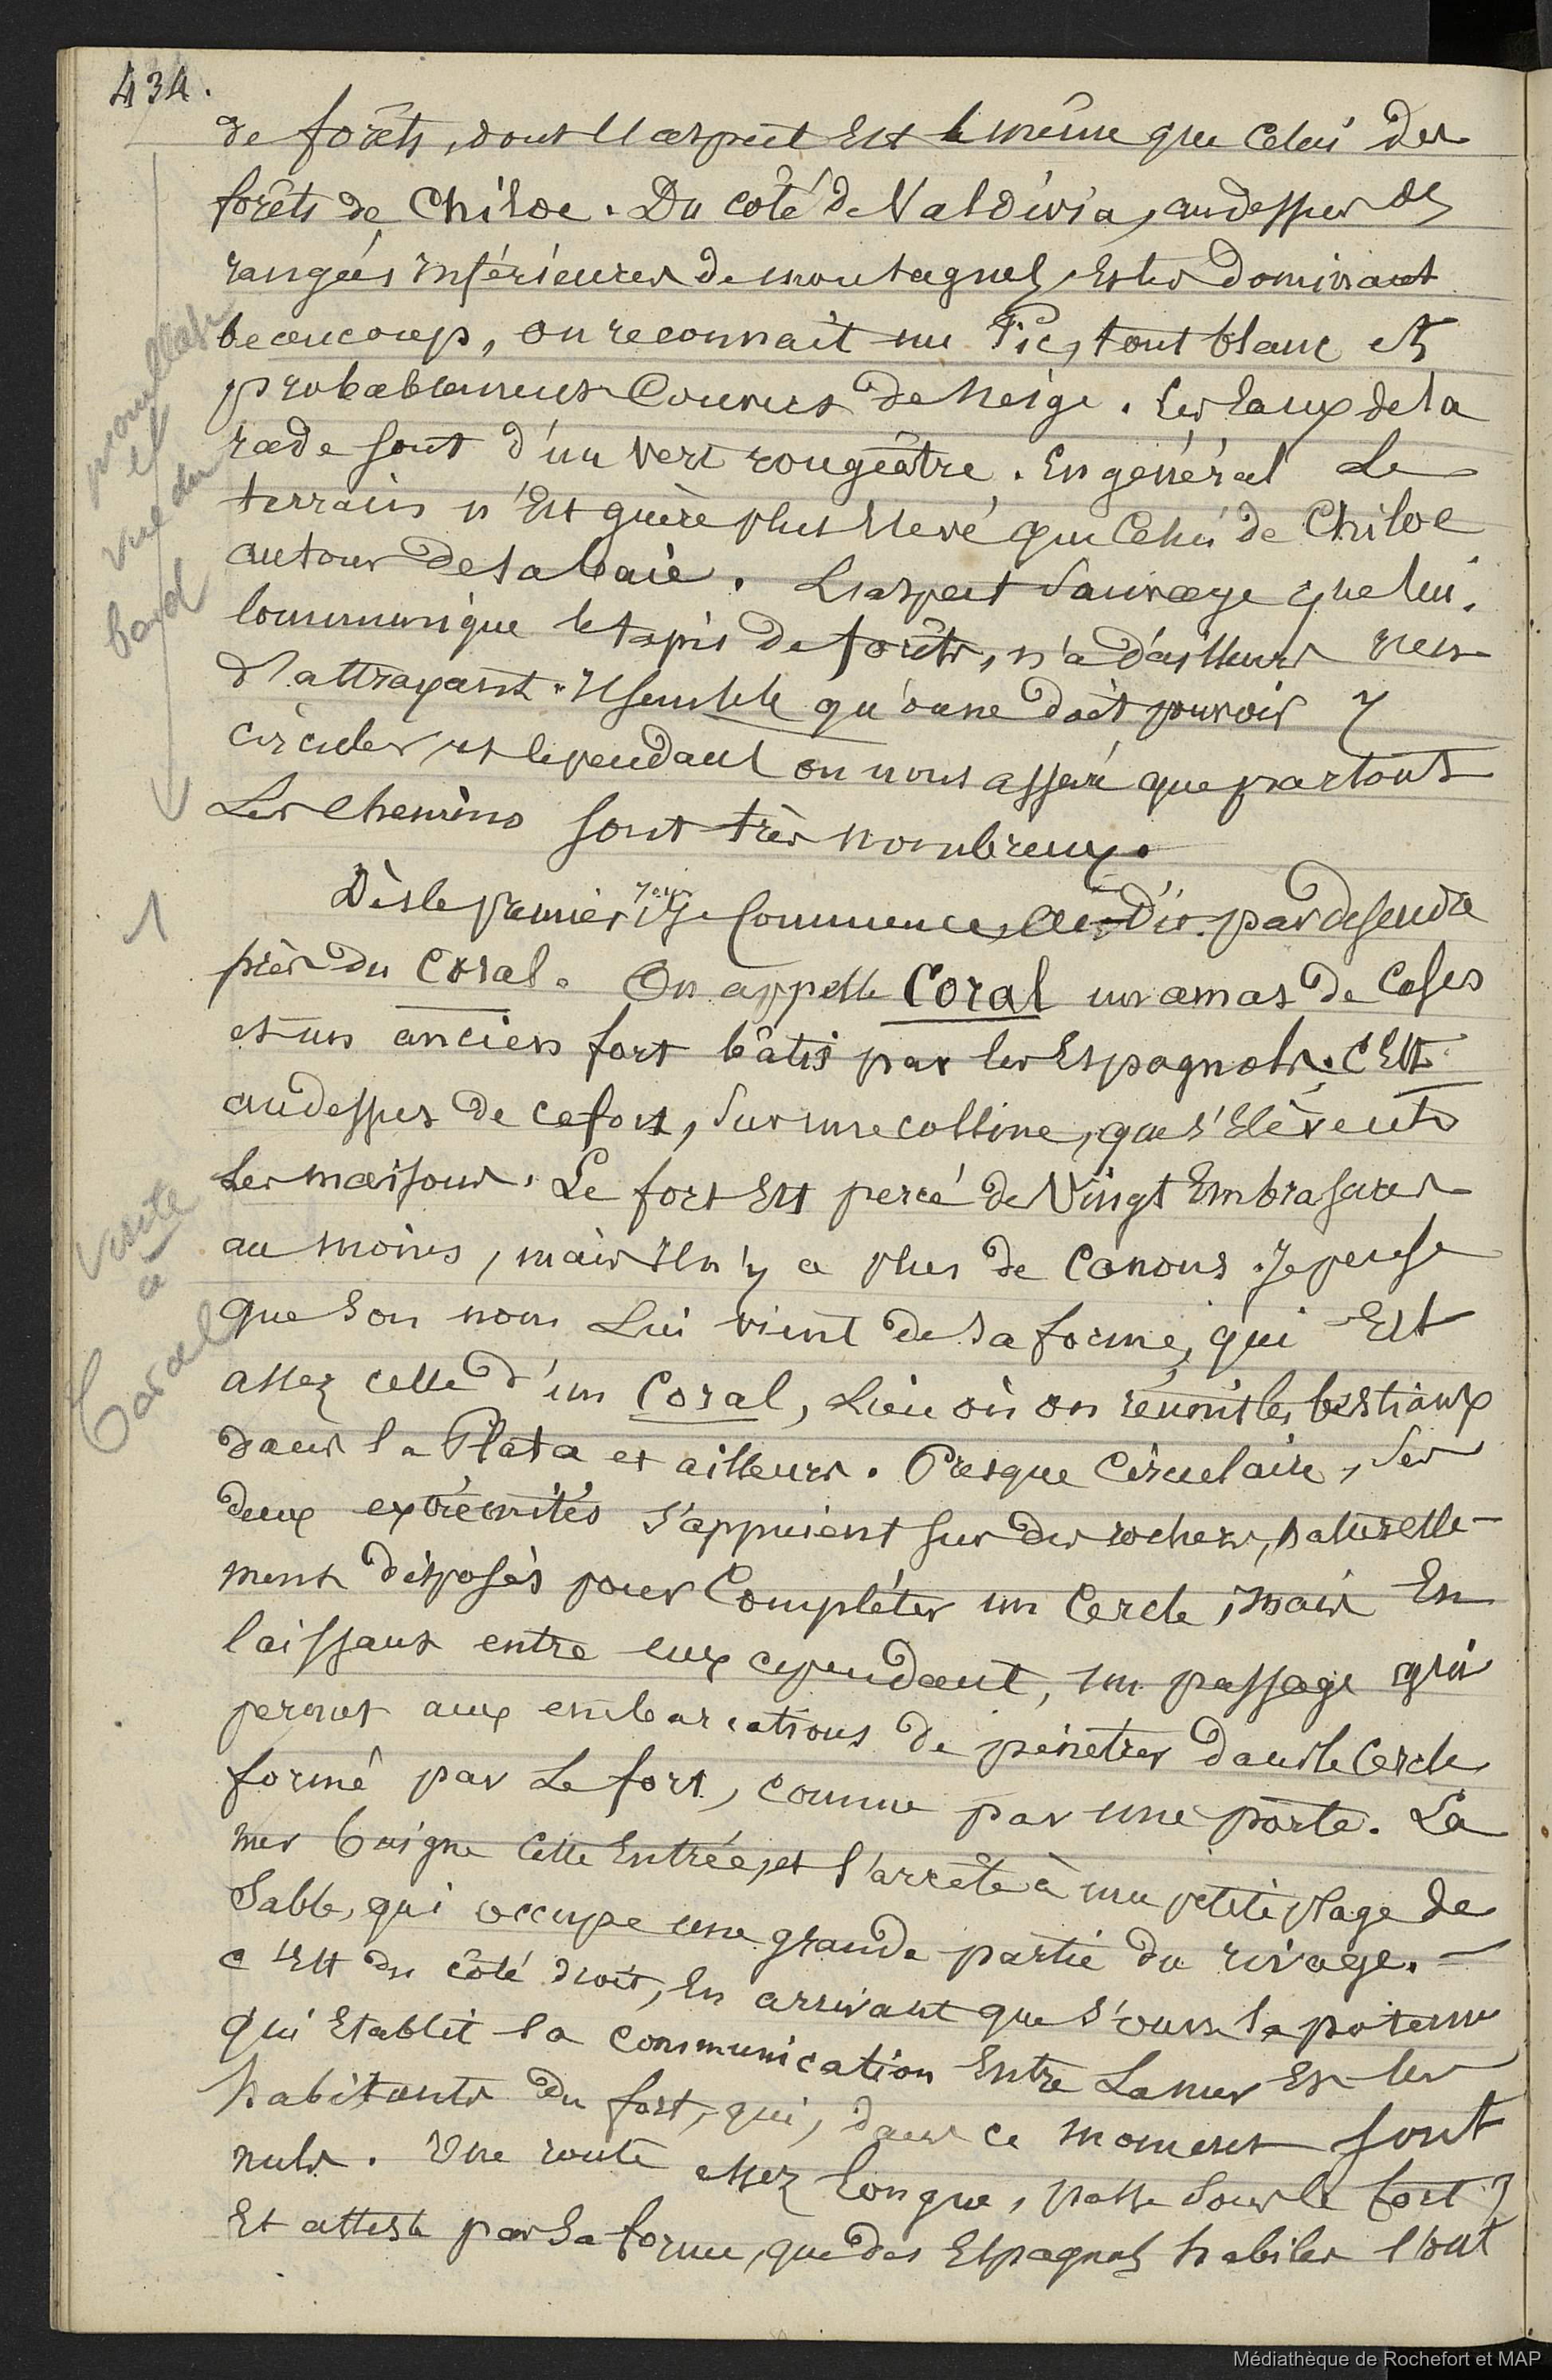 434.
de forêts, dont l'aspect est le même que celui des
forêts de Chiloe. Du coté de Valdivia, audessus des
rangées inférieures de montagnes, et les dominant
beaucoup, on reconnait un Pic, tout blanc et
probablement couvert de neige. Les eaux de la
rade sont d'un vert rougeâtre. En général le
terrain n'est guère plus élevé que celui de Chiloe
autour de la baie. L'aspect sauvage que lui
communique le tapis de forêts, n'a d'ailleurs rien
d'attrayant. Il semble qu'on ne doit pouvoir y
circuler, et cependant on nous assure que partout
les chemins sont très nombreux.
mouillage
et
vue du
bord
1
Dès le premier jour je commence, par descendre
près du Coral. On appelle Coral un amas de cases
et un ancien fort bâti par les Espagnols. C'est
audessus de ce fort, sur une colline, que s'élèvent
les maisons. Le fort est percé de vingt embrasures
au moins, mais il n'y a plus de canons. Je pense
que son nom lui vient de sa forme, qui est
assez celle d'un Coral, lieu où on réunit les bestiaux
dans la Plata et ailleurs. Presque circulaire, ses
deux extrémités s'appuient sur des rochers, naturelle-
ment disposés pour compléter un cercle, mais en
laissant entre eux cependant, un passage qui
permet aux embarcations de pénétrer dans le cercle
formé par le fort, comme par une porte. La
mer baigne cette entrée, et s'arrête à une petite plage de
sable, qui occupe une grande partie du rivage. —
c'est du côté droit, en arrivant que s'ouvre la poterne
qui établit la communication entre la mer et les
habitants du fort, qui, dans ce moment sont
nuls. Une route assez longue, passe sous le fort
et atteste par sa forme, que des Espagnols habiles l'ont
Visite
à
Coral
Médiathèque de Rochefort et MAP